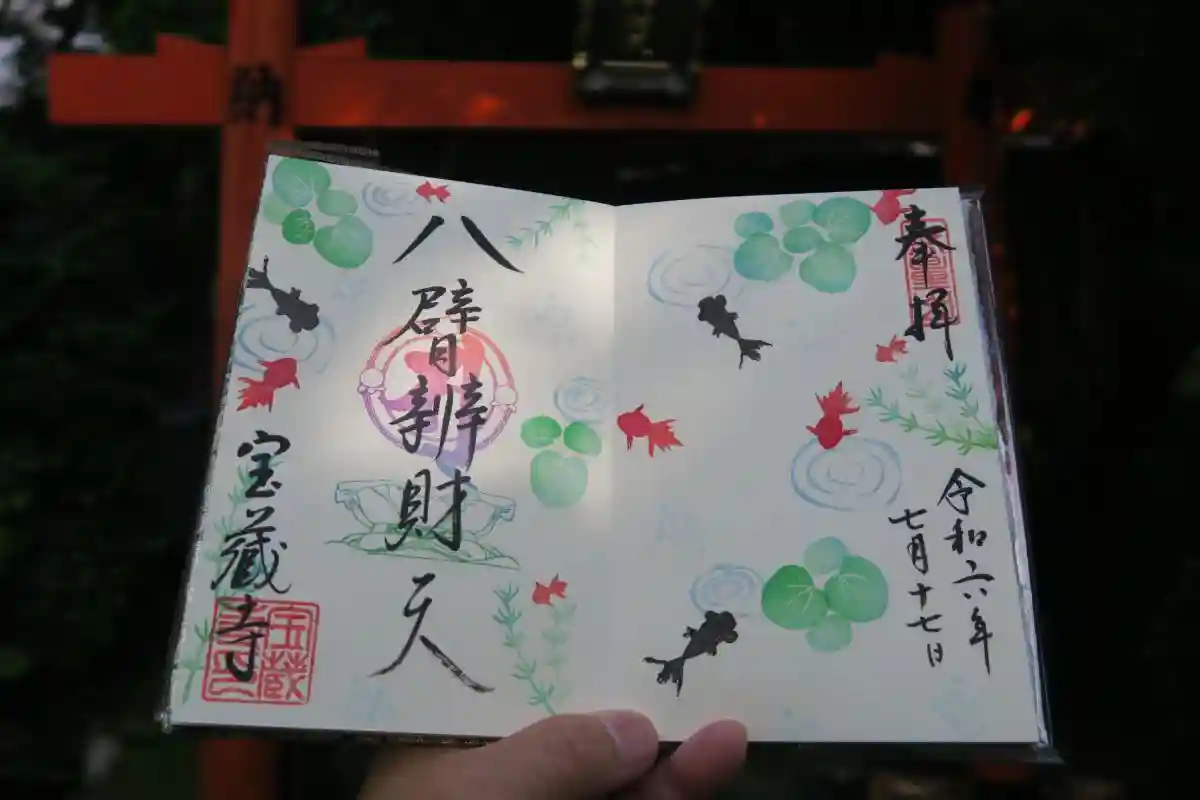 奉拝
令和六年
七月十七日
八臂辨財天
宝蔵寺
宝蔵